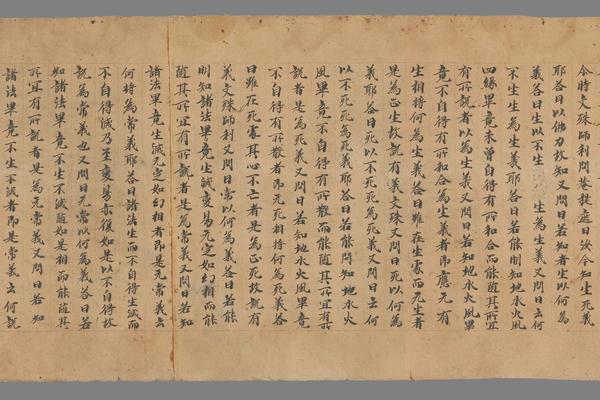 尒時文殊師利問菴提遮曰汝今知生死義
耶荅曰以佛力故知又問曰若知者生以何為
義荅曰生以不生　生為生義又問曰云何
不生生為生義耶荅曰若能明知地水火風
四緣畢竟未曾自得有所和合而能隨其所宜
有所說者以為生義又問曰若知地水火風畢
竟不自得有所和合為生義者即應无有
生相將何為生義荅曰雖在生處而无生者
是為正生故說有義文殊又問曰死以何為
義耶荅曰死以不死死為死義又問曰云何
以不死死為死義耶荅曰若能明知地水火
風畢竟不自得有所散而能隨其所宜有所
說者是為死義又問曰若知地水火風畢竟
不自得有所散者即无死相將何為死義荅
曰雖在死處其心不亡者是為正死故說有
義文殊師利又問曰常以何為義荅曰若能
明知諸法畢竟生滅變易无定如幻相而能
隨其所宜有所說者是為常義又問曰若知
諸法畢竟生滅无定如幻相者即是无常義云
何將為常義耶荅曰諸法生而不自得生滅而
不自得滅乃至變易亦復如是以不自得故
說為常義也又問曰无常以何為義荅曰若
知諸法畢竟不生不滅隨如是相而能隨其
所宜有所說者是為无常義又問曰若知
諸法畢竟不生不滅者即是常義云何說